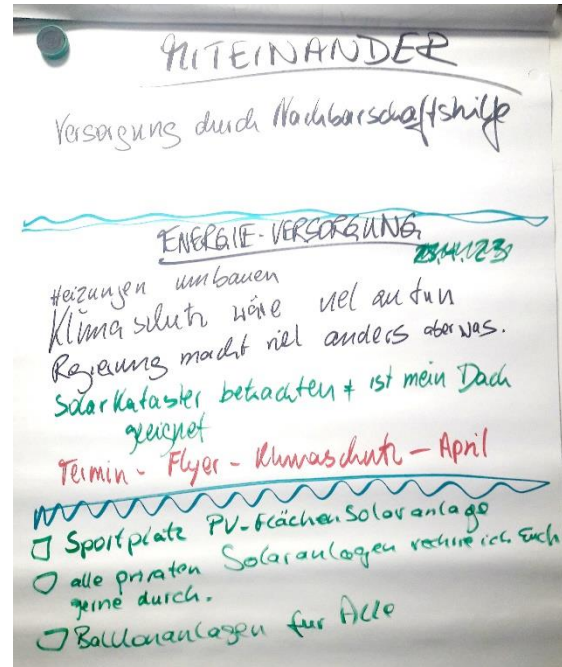 MITEINANDER
Versorgung durch Nachbarschaftshilfe
ENERGIE-VERSORGUNG
Heizungen umbauen
Klimaschutz wäre viel zu tun
Regierung macht viel anders aber was.
Solarkataster betrachten + ist mein Dach
geeignet
Termin - Flyer - Klimaschutz - April
Sportplatz PV-Flächen Solaranlage
alle privaten Solaranlagen rechne ich Euch
gerne durch.
Balkonanlagen für Alle